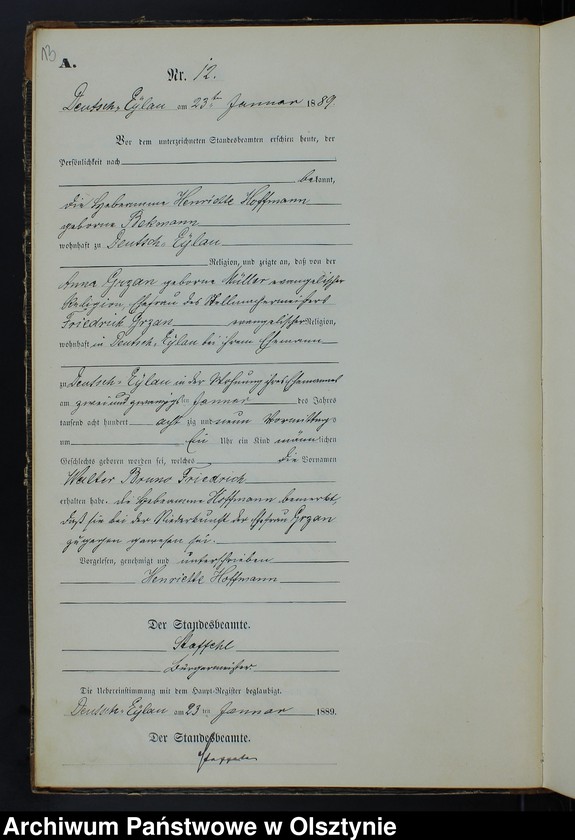 13
A.
Nr. 12.
Deutsch-Eylau am 23ten Januar 1889.
Vor dem unterzeichneten Standesbeamten erschien heute, der
Persönlichkeit nach
bekannt,
die Hebeamme Henriette Hoffmann
geborne Bekmann
wohnhaft zu Deutsch-Eylau
Religion, und zeigte an, daß von der
Anna Grzan geborne Müller evangelischer
Religion, Ehefrau des Stellmachermeisters
Friedrich Grzan evangelischer Religion,
wohnhaft in Deutsch-Eylau bei ihrem Ehemann
zu Deutsch-Eylau in der Wohnung ihres Ehemannes
am zwei und zwanzigsten Januar des Jahres
tausend acht hundert acht zig und neun Vormittags
um Ein Uhr ein Kind männlichen
Geschlechts geboren worden sei, welches die Vornamen
Walter Bruno Friedrich
erhalten habe. die Hebeamme Hoffmann bemerkt,
daß sie bei der Niederkunft der Ehefrau Grzan
zugegen gewesen sei.
Vorgelesen, genehmigt und unterschrieben
Henriette Hoffmann
Der Standesbeamte.
Staffehl
Bürgermeister
Die Uebereinstimmung mit dem Haupt-Register beglaubigt.
Deutsch-Eylau am 23ten Januar 1889.
Der Standesbeamte.
Archiwum Państwowe w Olsztynie